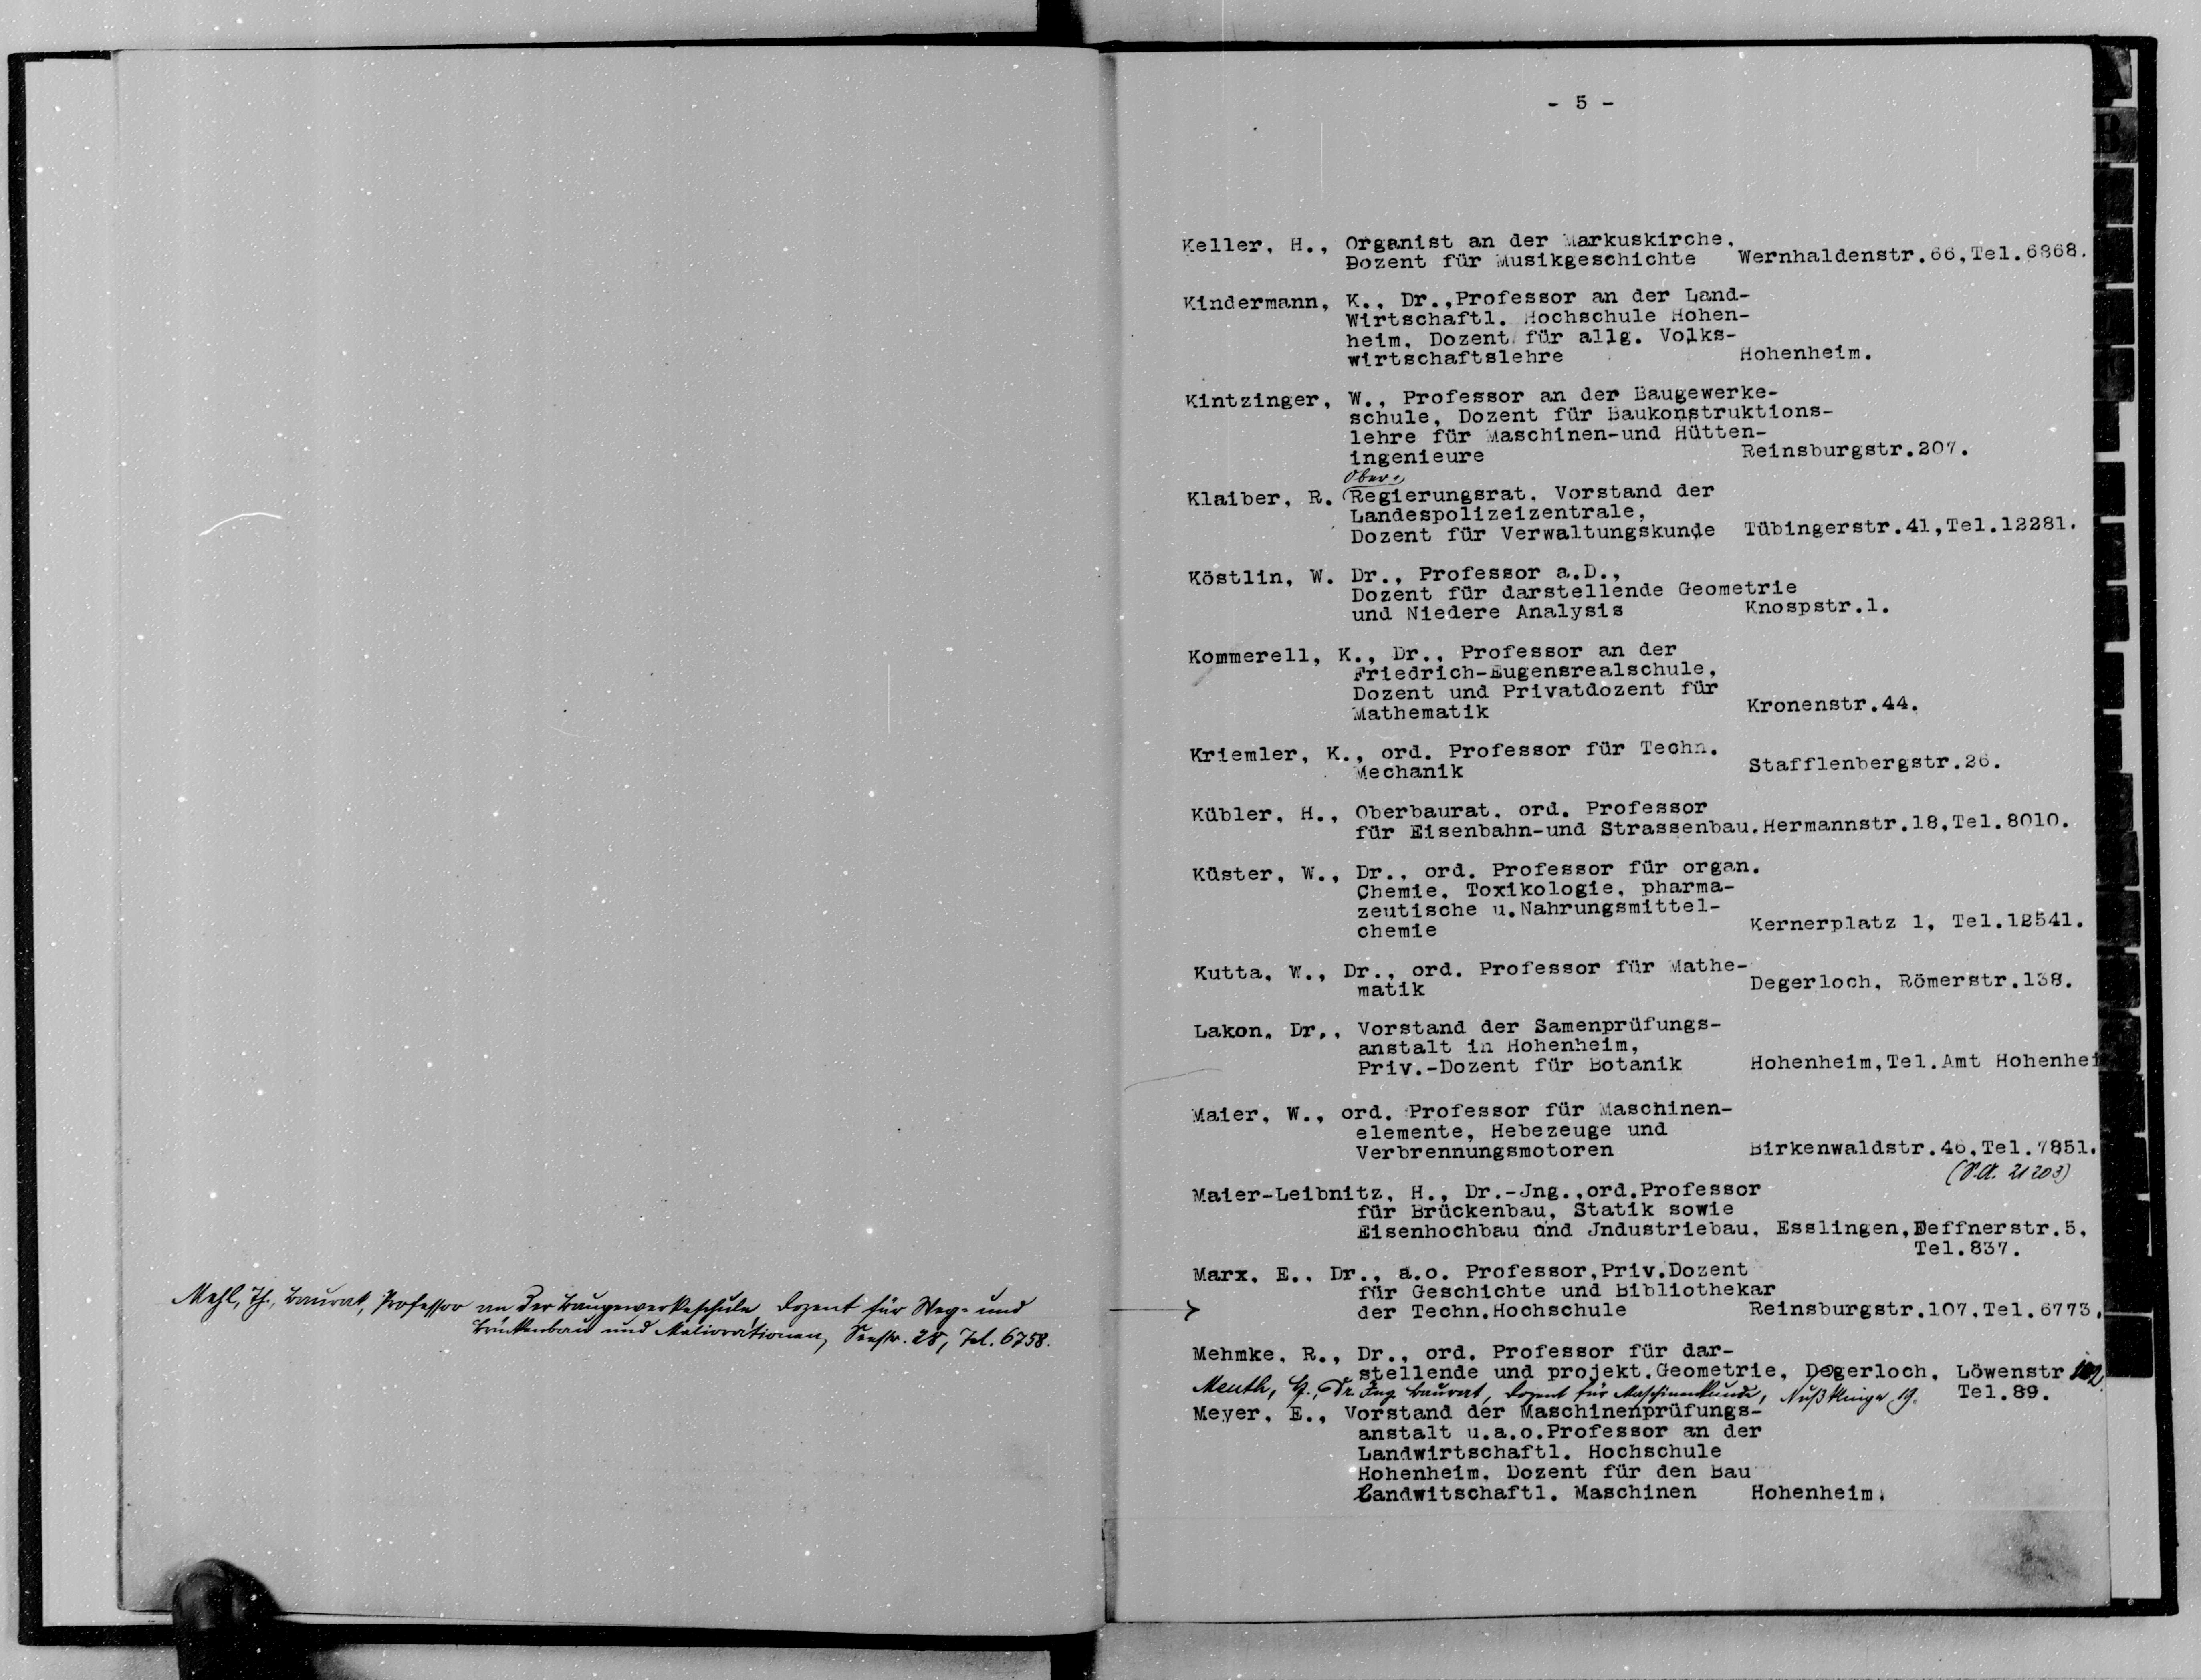 Mehl, Th., Baurat, Professor an der Baugewerkeschule Dozent für Weg- und
Brückenbau und Meliorationen, Seestr. 28, Tel. 6758.
- 5 -
Keller, H., Organist an der Markuskirche,
Dozent für Musikgeschichte Wernhaldenstr.66,Tel.6868.
Kindermann, K., Dr.,Professor an der Land-
Wirtschaftl. Hochschule Hohen-
heim, Dozent für allg. Volks-
wirtschaftslehre Hohenheim.
Kintzinger, W., Professor an der Baugewerke-
schule, Dozent für Baukonstruktions-
lehre für Maschinen-und Hütten-
ingenieure Reinsburgstr.207.
Ober-
Klaiber, R. Regierungsrat, Vorstand der
Landespolizeizentrale,
Dozent für Verwaltungskunde Tübingerstr.41,Tel.12281.
Köstlin, W. Dr., Professor a.D.,
Dozent für darstellende Geometrie
und Niedere Analysis Knospstr.1.
Kommerell, K., Dr., Professor an der
Friedrich-Eugensrealschule,
Dozent und Privatdozent für
Mathematik Kronenstr.44.
Kriemler, K., ord. Professor für Techn.
Mechanik Stafflenbergstr.26.
Kübler, H., Oberbaurat, ord. Professor
für Eisenbahn-und Strassenbau,Hermannstr.18,Tel.8010.
Küster, W., Dr., ord. Professor für organ.
Chemie, Toxikologie, pharma-
zeutische u.Nahrungsmittel-
chemie Kernerplatz 1, Tel.12541.
Kutta, W., Dr., ord. Professor für Mathe-
matik Degerloch, Römerstr.138.
Lakon, Dr., Vorstand der Samenprüfungs-
anstalt in Hohenheim,
Priv.-Dozent für Botanik Hohenheim,Tel.Amt Hohenhei
Maier, W., ord. Professor für Maschinen-
elemente, Hebezeuge und
Verbrennungsmotoren Birkenwaldstr.46,Tel.7851.
(S.A. 21203)
Maier-Leibnitz, H., Dr.-Jng.,ord.Professor
für Brückenbau, Statik sowie
Eisenhochbau und Jndustriebau, Esslingen,Deffnerstr.5,
Tel.837.
Marx, E., Dr., a.o. Professor,Priv.Dozent
für Geschichte und Bibliothekar
der Techn.Hochschule Reinsburgstr.107,Tel.6773.
Mehmke, R., Dr., ord. Professor für dar-
stellende und projekt.Geometrie, Degerloch, Löwenstr 102.
Tel.89.
Meuth, H., Dr. Ing. Baurat, Dozent für Maschinenkunde, Nußklinge 19.
Meyer, E., Vorstand der Maschinenprüfungs-
anstalt u.a.o.Professor an der
Landwirtschaftl. Hochschule
Hohenheim, Dozent für den Bau
Landwitschaftl. Maschinen Hohenheim.
B